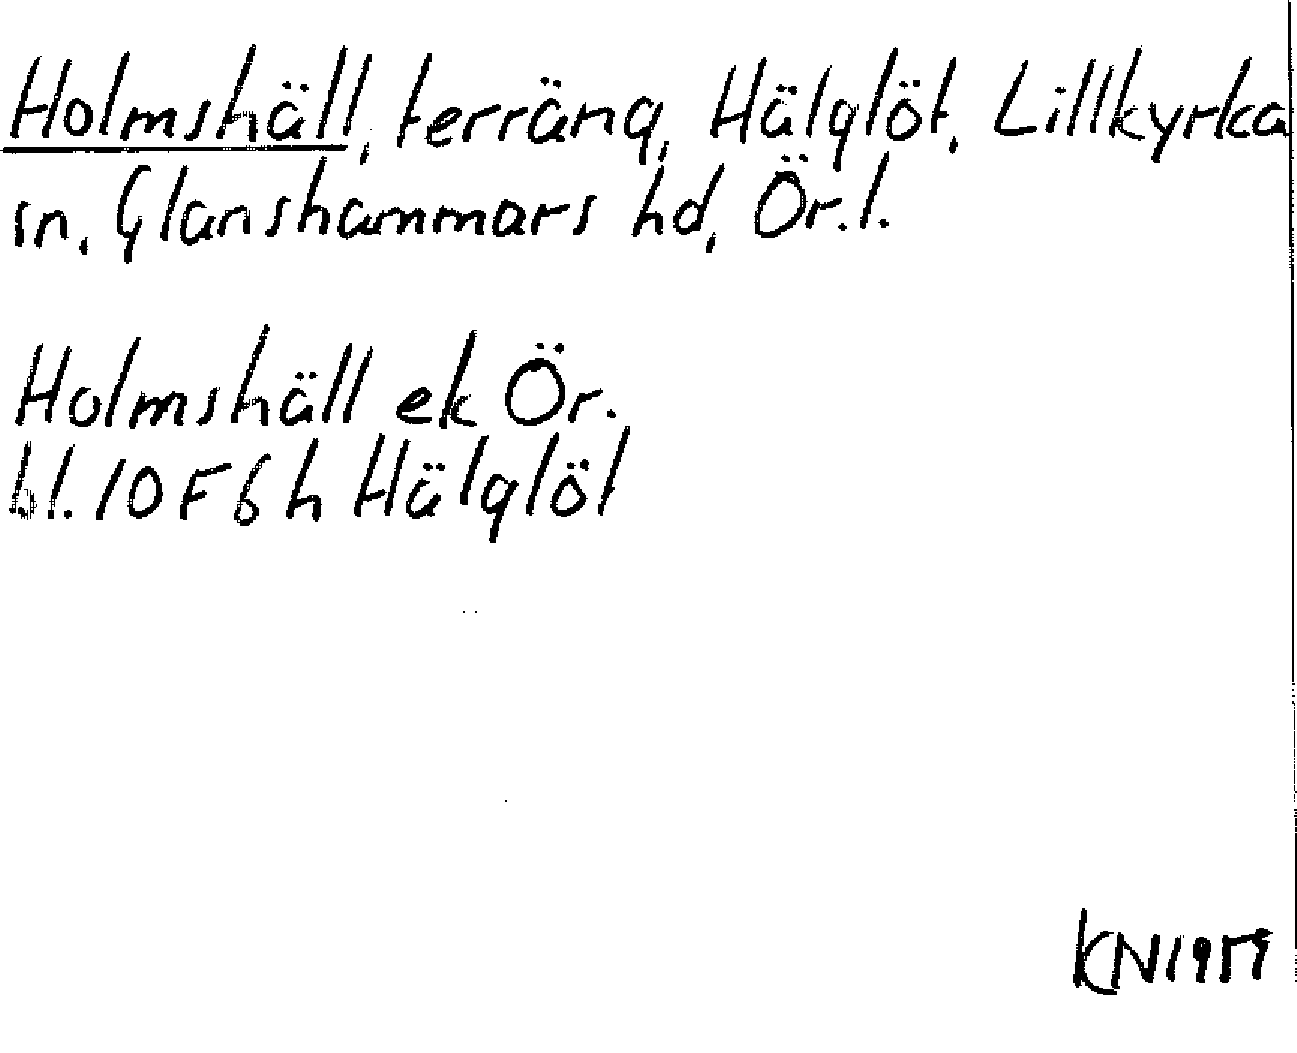 Holmshäll, terräng, Hälglöt, Lillkyrka
sn, Glanshammars hd, Ör.l.
Holmshäll ek Ör.
bl. 10 F 6 h Hälglöt